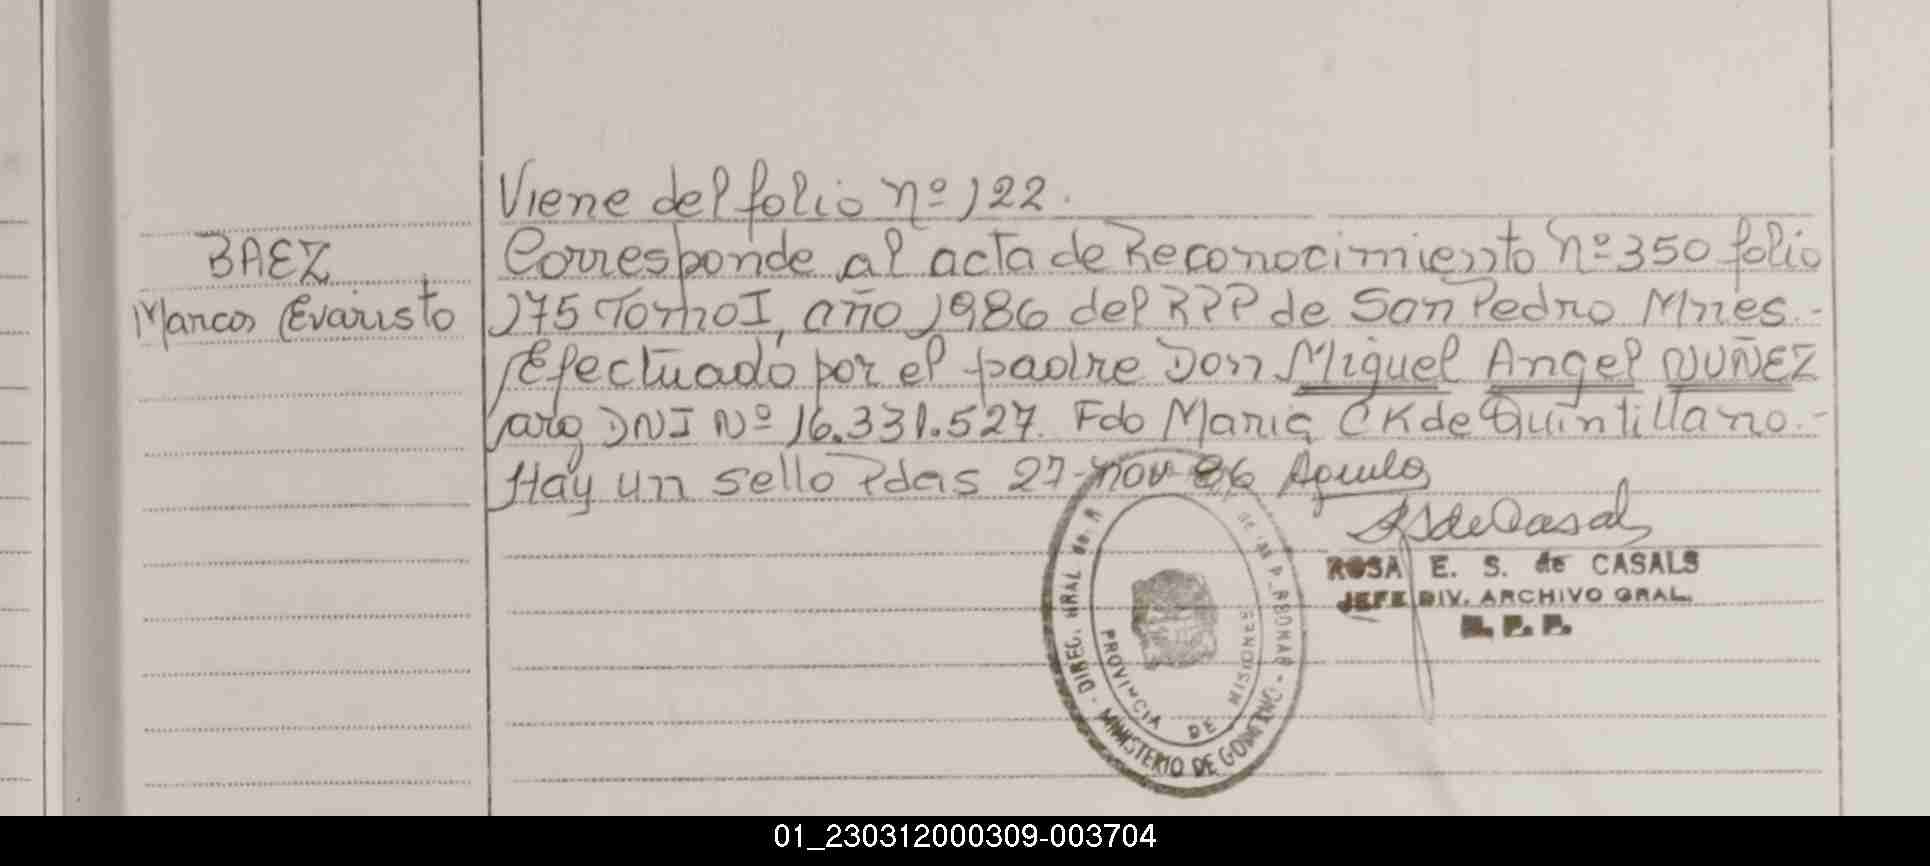 Viene del folio nº 122.
BAEZ
Corresponde al acta de Reconocimiento nº 350 folio
Marcos Evaristo
175 Tomo I, año 1986 del RPP de San Pedro Mnes.-
Efectuado por el padre Don Miguel Angel NUÑEZ
arg DNI Nº 16.331.527. Fdo Maria CK de Quintillano.-
Hay un sello Pdas 27-nov 86
ROSA E. S. de CASALS
JEFE DIV. ARCHIVO GRAL.
R. P. P.
DIREC. GRAL de R de las PERSONAS - MINISTERIO DE GOBIERNO
PROVINCIA DE MISIONES
01_230312000309-003704